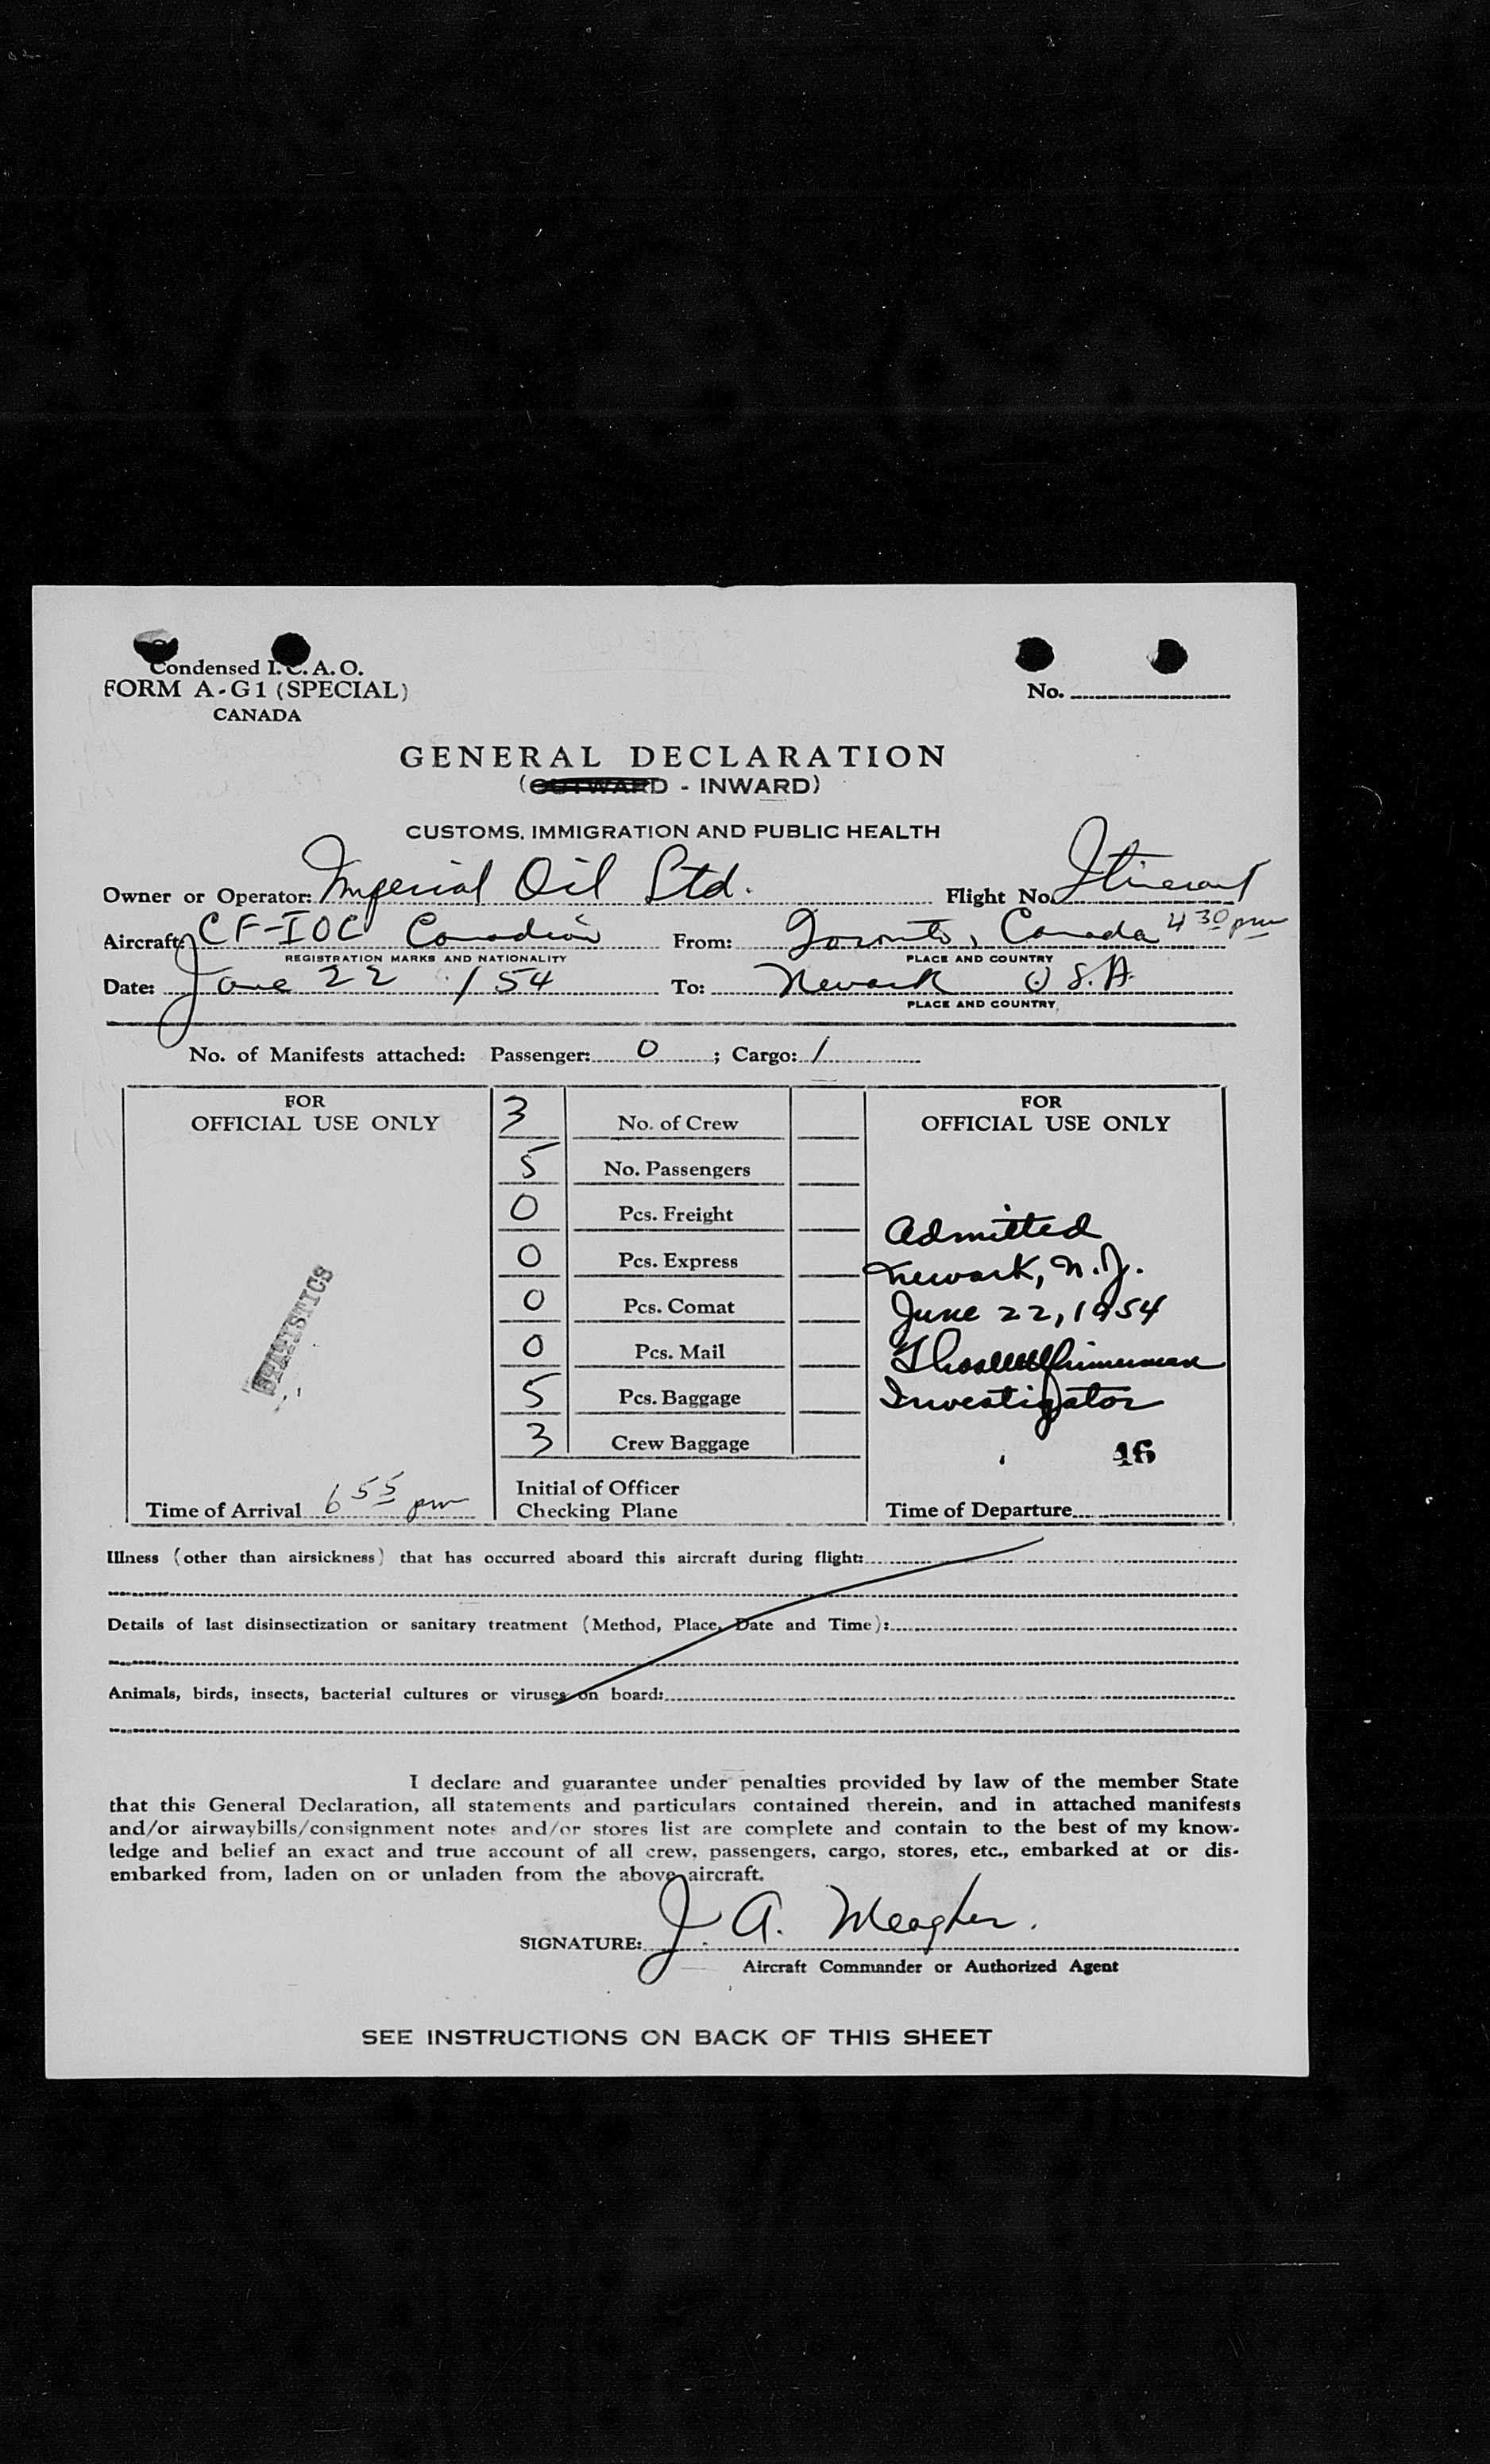 Condensed I. C. A. O.
FORM A-G1 (SPECIAL)
CANADA
No.
GENERAL DECLARATION
(OUTWARD - INWARD)
CUSTOMS, IMMIGRATION AND PUBLIC HEALTH
Owner or Operator: Imperial Oil Ltd. Flight No. Itinerant
Aircraft: CF-IOC Canadian From: Toronto, Canada 4 30 pm
REGISTRATION MARKS AND NATIONALITY PLACE AND COUNTRY
Date: June 22 / 54 To: Newark U S.A.
PLACE AND COUNTRY
No. of Manifests attached: Passenger: 0 ; Cargo: 1
FOR
OFFICIAL USE ONLY
STATISTICS
Time of Arrival 6 55 pm
3 No. of Crew
5 No. Passengers
0 Pcs. Freight
0 Pcs. Express
0 Pcs. Comat
0 Pcs. Mail
5 Pcs. Baggage
3 Crew Baggage
Initial of Officer
Checking Plane
FOR
OFFICIAL USE ONLY
Admitted
Newark, N.J.
June 22, 1954
Investigator
16
Time of Departure
Illness (other than airsickness) that has occurred aboard this aircraft during flight:
Details of last disinsectization or sanitary treatment (Method, Place, Date and Time):
Animals, birds, insects, bacterial cultures or viruses on board:
I declare and guarantee under penalties provided by law of the member State
that this General Declaration, all statements and particulars contained therein, and in attached manifests
and/or airwaybills/consignment notes and/or stores list are complete and contain to the best of my know-
ledge and belief an exact and true account of all crew, passengers, cargo, stores, etc., embarked at or dis-
embarked from, laden on or unladen from the above aircraft.
SIGNATURE: J. A. Meagher.
Aircraft Commander or Authorized Agent
SEE INSTRUCTIONS ON BACK OF THIS SHEET